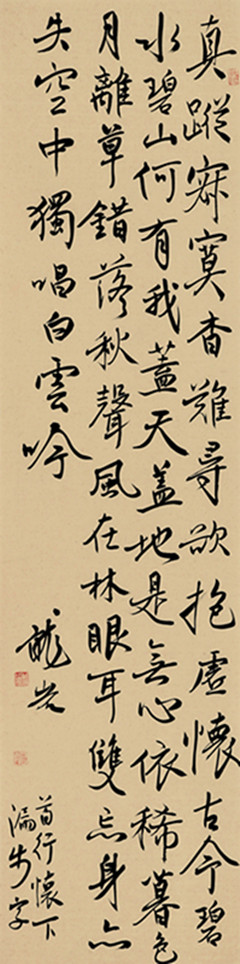 真蹤寂寞杳難尋欲抱虛懷古今碧
水碧山何有我蓋天蓋地是無心依稀暮色
月離草錯落秋聲風在林眼耳雙忘身亦
失空中獨唱白雲吟
龍岩
首行懷下
漏步字